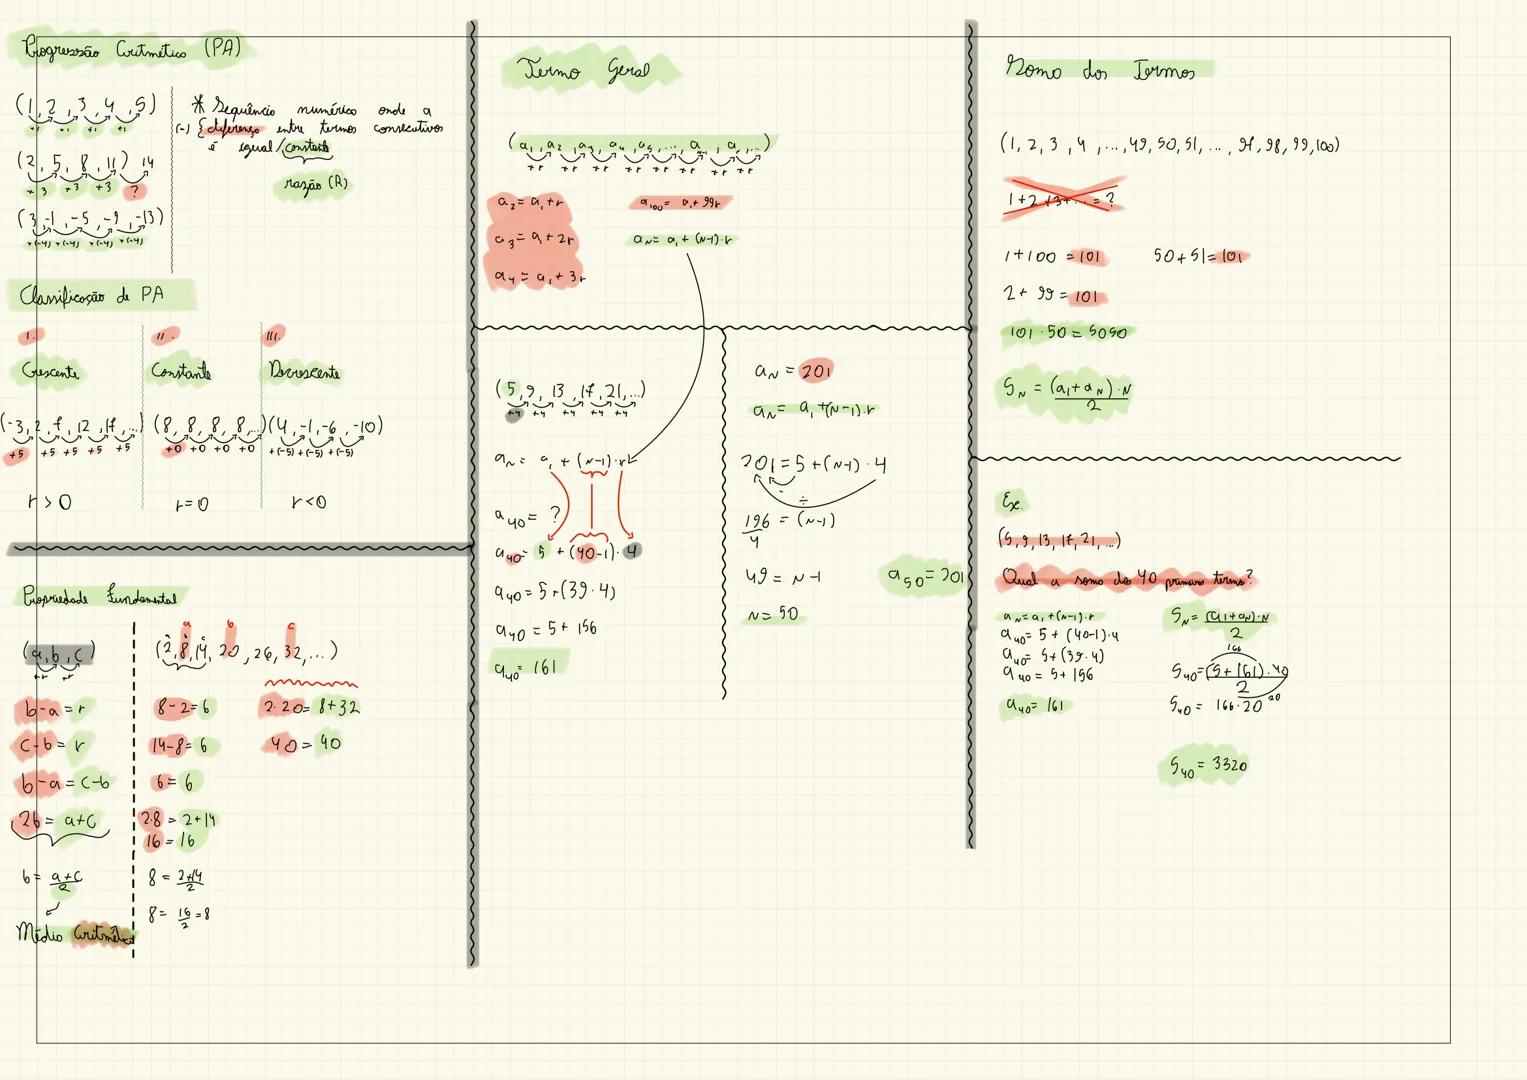 Progressão Aritmética (PA)
(1, 2, 3, 4, 5)
+1 +1 +1 +1
(2, 5, 8, 11) 14
+3 +3 +3 ?
(3, -1, -5, -9, -13)
+(-4) +(-4) +(-4) +(-4)
* Sequência numérica onde a
(-) { diferença entre termos consecutivos
é igual/constante
razão (R)
Classificação de PA
I. II. III.
Crescente Constante Decrescente
(-3, 2, 7, 12, 17, ...) (8, 8, 8, 8, ...) (4, -1, -6, -10)
+5 +5 +5 +5 +5 +0 +0 +0 +0 +(-5) +(-5) +(-5)
r > 0 r = 0 r < 0
Propriedade Fundamental
(a, b, c)
+r +r
b-a = r
c-b = r
b-a = c-b
2b = a+c
b = a+c/2
Média Aritmética
a b c
a b c
(2, 8, 14, 20, 26, 32, ...)
8-2 = 6
14-8 = 6
6 = 6
2·8 = 2+14
16 = 16
8 = 2+14/2
8 = 16/2 = 8
2·20 = 8+32
40 = 40
Termo Geral
(a₁, a₂, a₃, a₄, a₅, ... , a , a , ...)
+r +r +r +r +r +r +r +r
a₂ = a₁+r
a₃ = a₁+2r
a₄ = a₁+3r
a₁₀₀ = a₁+99r
aₙ = a₁+(N-1)·r
(5, 9, 13, 17, 21, ...)
+4 +4 +4 +4 +4
aₙ = a₁ + (N-1)·r
a₄₀ = ?
a₄₀ = 5 + (40-1)·4
a₄₀ = 5+(39·4)
a₄₀ = 5+ 156
a₄₀ = 161
aₙ = 201
aₙ = a₁+(N-1)·r
201 = 5+(N-1)·4
- ÷
196/4 = (N-1)
49 = N-1
N = 50
a₅₀ = 201
Soma dos Termos
(1, 2, 3, 4, ..., 49, 50, 51, ..., 97, 98, 99, 100)
1+2+3+... = ?
1+100 = 101 50+51 = 101
2+ 99 = 101
101·50 = 5050
Sₙ = (a₁+aₙ)·N/2
Ex.
(5, 9, 13, 17, 21, ...)
Qual a soma dos 40 primeiros termos?
aₙ = a₁+(N-1)·r
a₄₀ = 5 + (40-1)·4
a₄₀ = 5+(39·4)
a₄₀ = 5+ 156
a₄₀ = 161
Sₙ = (a₁+aₙ)·N/2
166
S₄₀ = (5+161)·40/2
20
S₄₀ = 166·20
S₄₀ = 3320